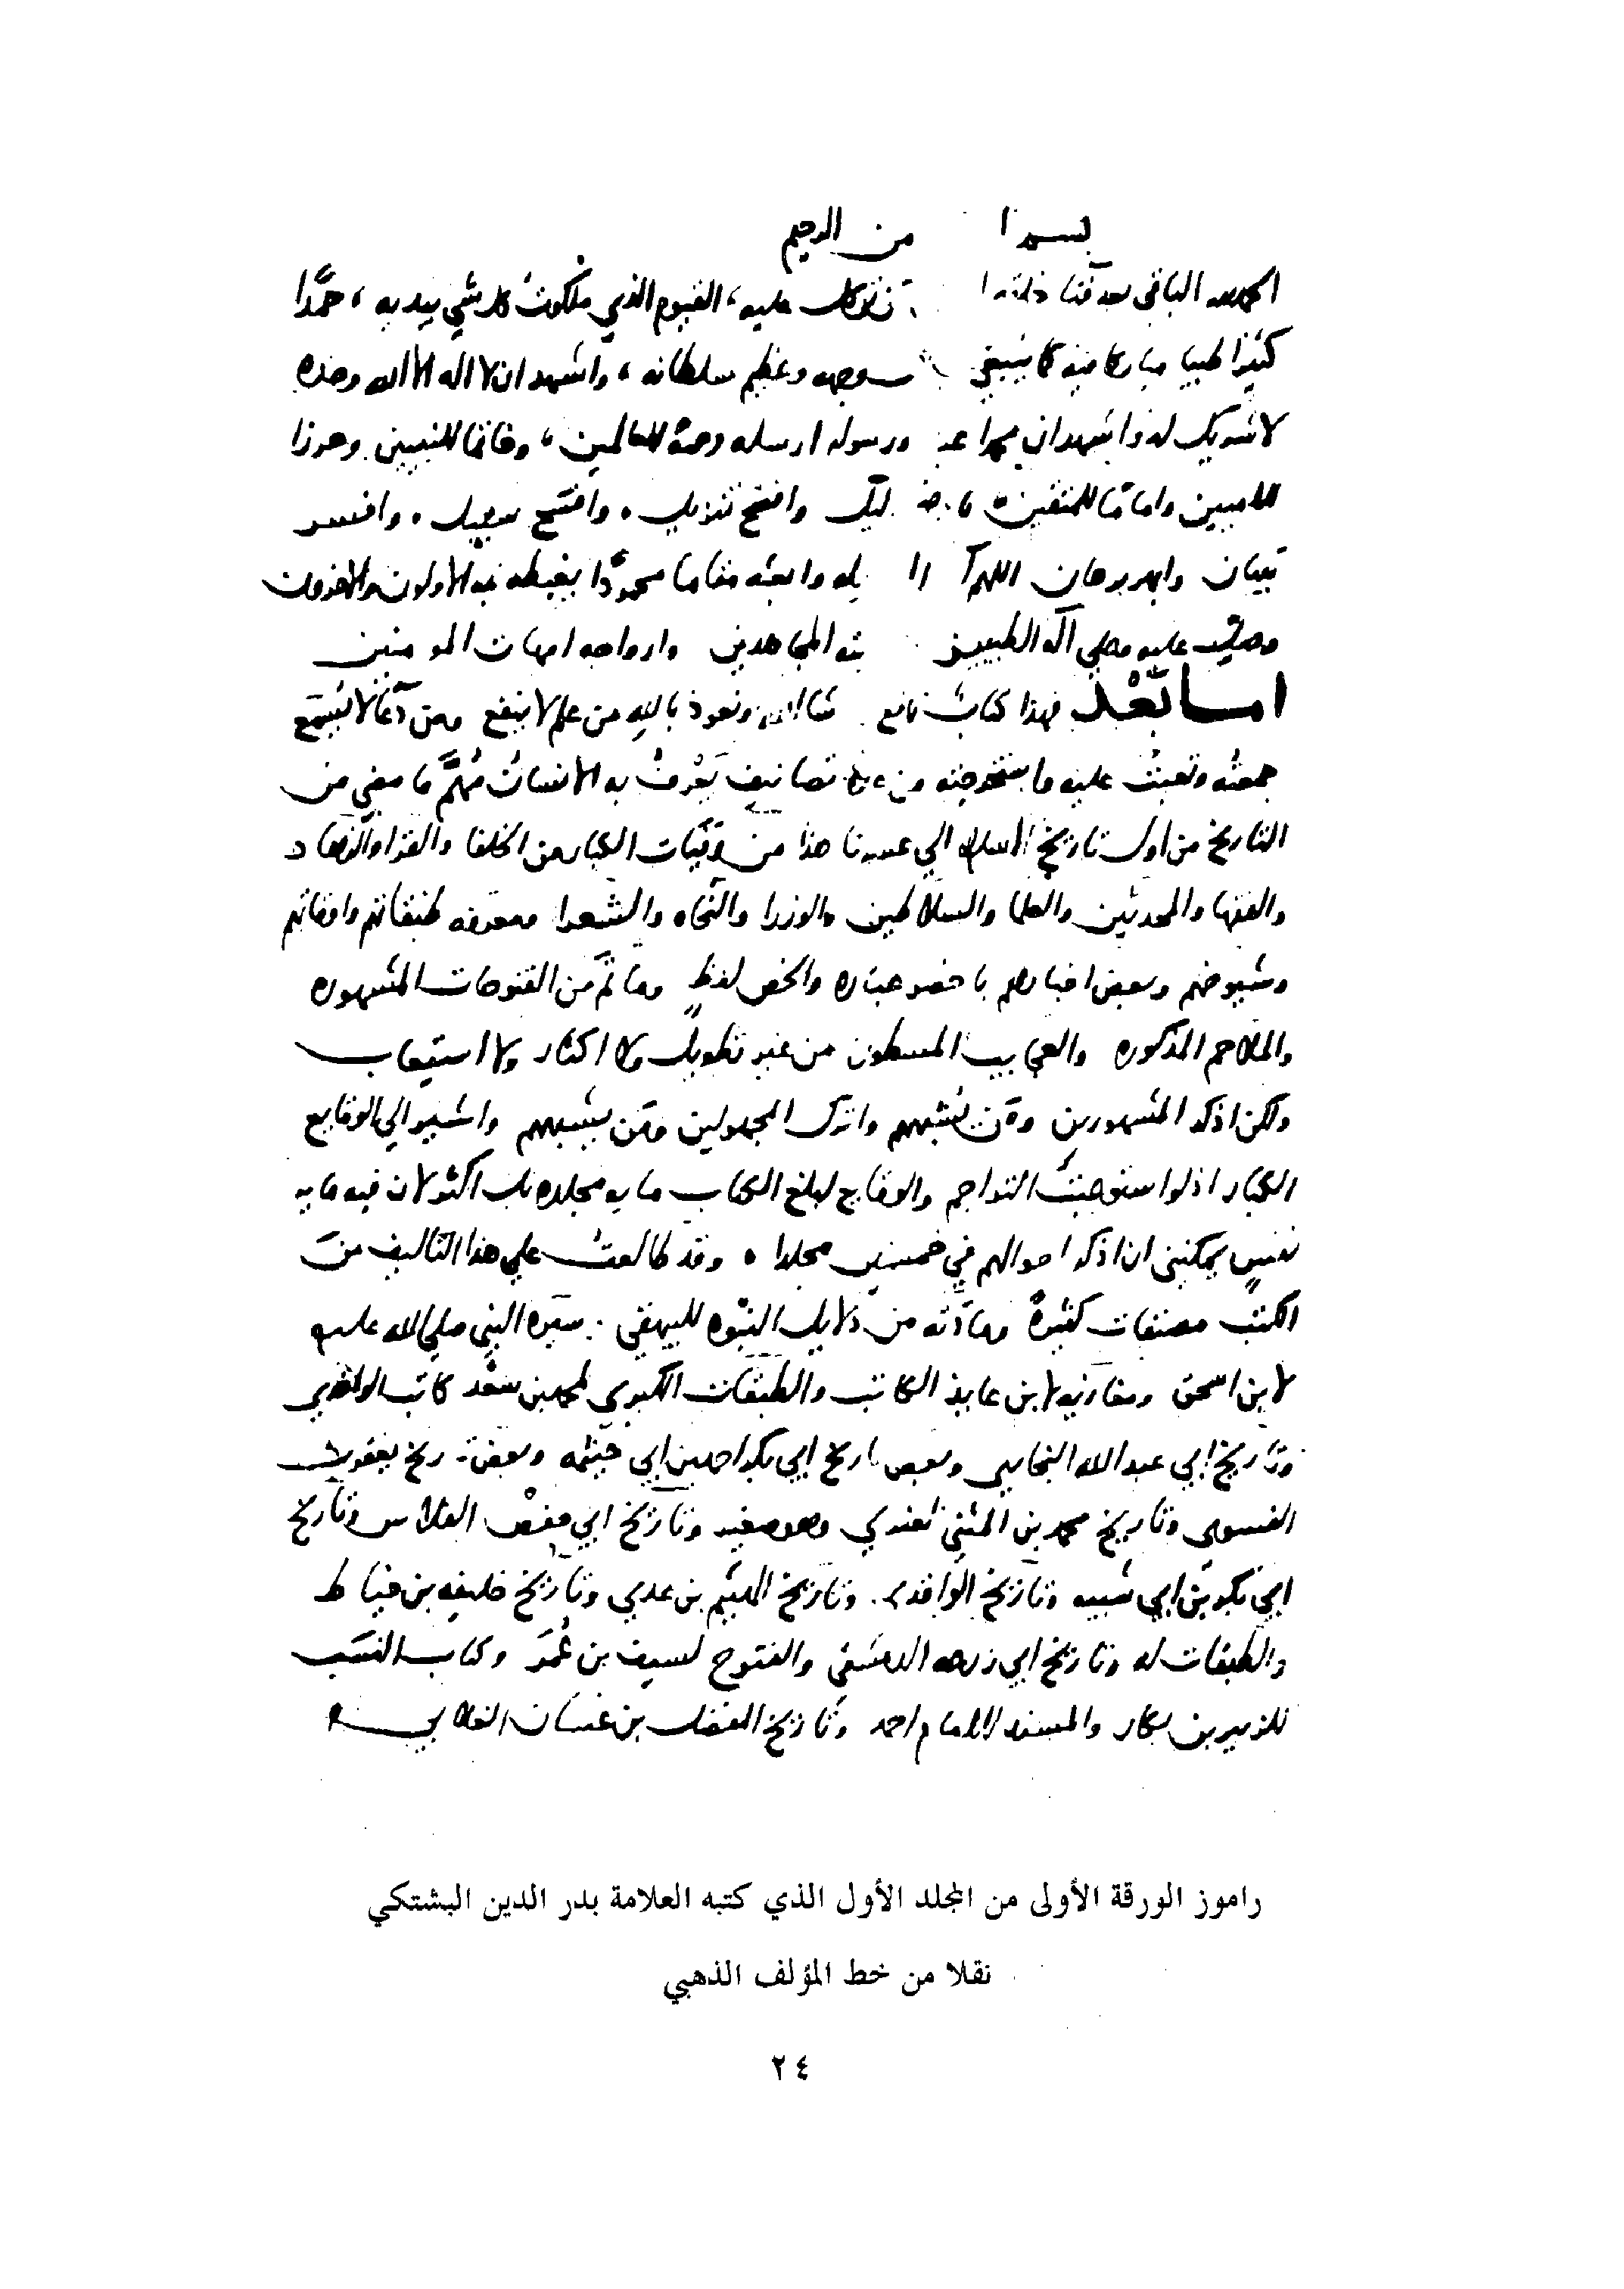 بسم ا من الرحيم
الحمد لله الباقي بعد فنا خلقه ا توكل عليه، القيوم الذي ملكوت كل شي بيديه، حمدًا
كثيرًا طيبا مباركا فيه كما ينبغي وجهه وعظيم سلطانه، واشهد ان لا اله الا الله وحده
لا شريك له واشهد ان محمدا عبد ورسوله ارسله رحمة للعالمين، وخاتما للنبيين وحرزا
للاميين وامامًا للمتقين ليل وافصح تنزيل. وافسح سبيل. وافسر
تبيان وابهر برهان اللهم ا يله وابعثه مقاما محمودًا يغبطه به الاولون والاخرون
وصل عليه وعلي اله الطيبين المجاهدين وازواجه امهات المومنين
اما بعد فهذا كتاب نافع شا الله ونعوذ بالله من علم لا ينفع ومن دعا لا يسمع
جمعته وتعبت عليه واستخرجته من عدة تصانيف يعرف به الانسان مهمّ ما مضي من
التاريخ من اول تاريخ الاسلام الي عصرنا هذا من وفيات الكبار من الخلفا والقرا والزهاد
والفقها والمحدثين والعلما والسلاطين والوزرا والنحاه والشعرا ومعرفه طبقاتهم واوقاتهم
وشيوخهم وبعض اخبارهم باخصر عباره والخص لفظ وما تم من الفتوحات المشهوره
والملاحم المذكوره والعجايب المسطوره من غير تطويل ولا اكثار ولا استيعاب
ولكن اذكر المشهورين ومن يشبههم واترك المجهولين ومن يشبههم واشير الي الوقايع
الكبار اذ لو استوعبت التراجم والوقايع لبلغ الكتاب مايه مجلده بل اكثر لان فيه مايه
نفس يمكنني ان اذكر احوالهم في خمسين مجلدا. وقد طالعت علي هذا التاليف من
الكتب مصنفات كثيرة ومادته من دلايل النبوه للبيهقي. سيره النبي صلي الله عليه
لابن اسحق ومغازيه لابن عايذ الكاتب والطبقات الكبري لمحمد بن سعد كاتب الواقدي
وتاريخ ابي عبد الله البخاري وبعض تاريخ ابي بكر احمد بن ابي خيثمه وبعض تاريخ يعقوب
الفسوي وتاريخ محمد بن المثني العنزي وهو صغير وتاريخ ابي حفص الفلاس وتاريخ
ابي بكر بن ابي شيبه وتاريخ الواقدي. وتاريخ الهيثم بن عدي وتاريخ خليفه بن خياط
والطبقات له وتاريخ ابي زرعه الدمشقي والفتوح لسيف بن عُمَر وكتاب النسب
للزبير بن بكار والمسند للامام احمد وتاريخ المفضل بن غسان الغلابي
راموز الورقة الأولى من المجلد الأول الذي كتبه العلامة بدر الدين البشتكي
نقلا من خط المؤلف الذهبي
٢٤